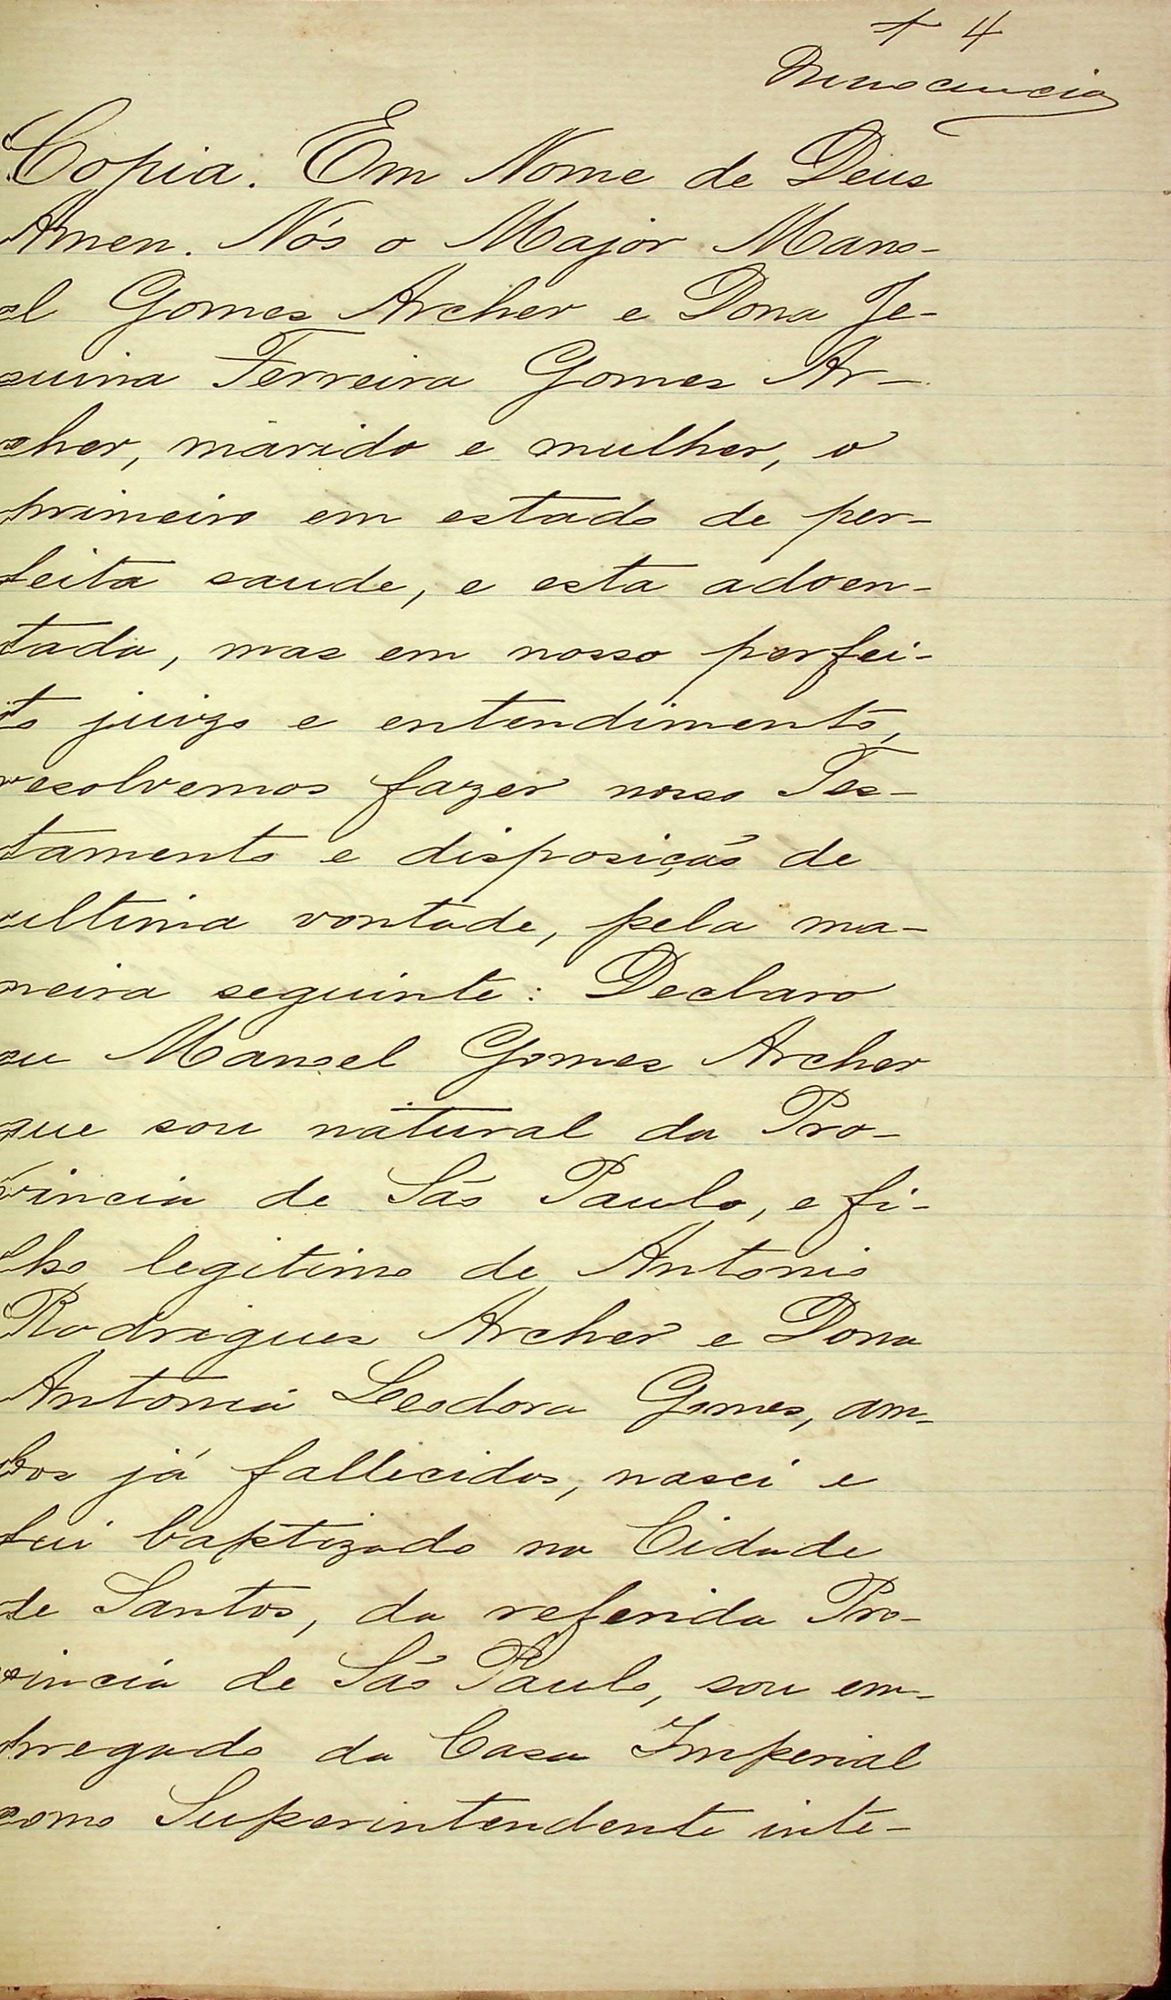 4
Copia. Em Nome de Deus
Amen. Nós o Major Mano-
el Gomes Archer e Dona Je-
suina Ferreira Gomes Ar-
cher, marido e mulher, o
primeiro em estado de per-
feita saude, e esta adoen-
tada, mas em nosso perfei-
to juizo e entendimento,
resolvemos fazer nosso Tes-
tamento e disposição de
ultima vontade, pela ma-
neira seguinte: Declaro
eu Manoel Gomes Archer
que sou natural da Pro-
vincia de São Paulo, e fi-
lho legitimo de Antonio
Rodrigues Archer e Dona
Antonia Leodora Gomes, am-
bos já fallecidos, nasci e
fui baptizado na Cidade
de Santos, da referida Pro-
vincia de São Paulo, sou em-
pregado da Casa Imperial
como Superintendente inte-